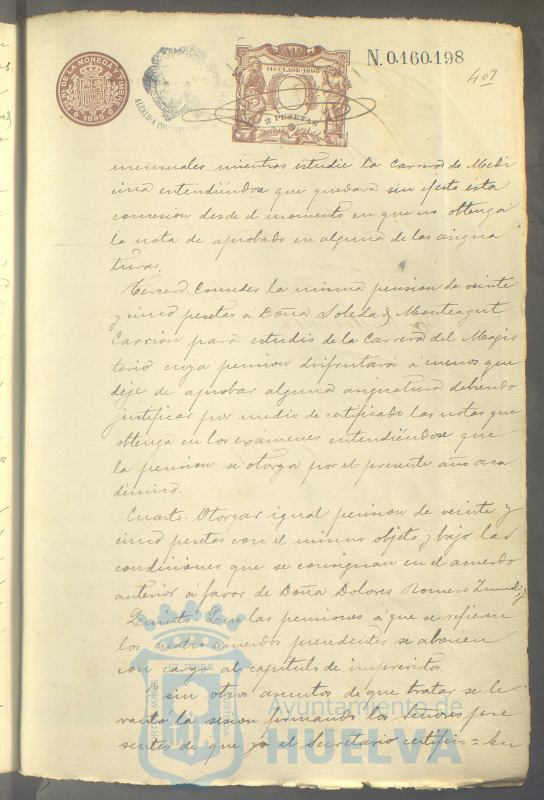 N. 0.160.198
409
CA DE LA MONEDA Y TIMBRE
1895
ALCALDIA
11ª CLASE-1895
2 PESETAS
mensuales mientras estudie la Carrera de Medi
cina entendiéndose que quedará sin efecto ésta
concesion desde el momento en que no obtenga
la nota de aprobado en alguna de las asigna
turas.
Tercero. Conceder la misma pension de veinte
y cinco pesetas á Doña Soledad Monteagut
Carrion para estudio de la Carrera del Magis
terio cuya pension disfrutará á menos que
deje de aprobar alguna asignatura debiendo
justificar por medio de certificado las notas que
obtenga en los exámenes entendiéndose que
la pension se otorga por el presente año aca
démico.
Cuarto. Otorgar igual pension de veinte y
cinco pesetas con el mismo objeto y bajo las
condiciones que se consignan en el acuerdo
anterior á favor de Doña Dolores Romero
Quinto. Que las pensiones á que se refieren
los cuatro acuerdos precedentes se abonen
con cargo al capítulo de imprevistos.
Y sin otros asuntos de que tratar se le
vantó la sesion firmando los Señores pre
sentes de que yo el Secretario certifico = En
Ayuntamiento de
HUELVA